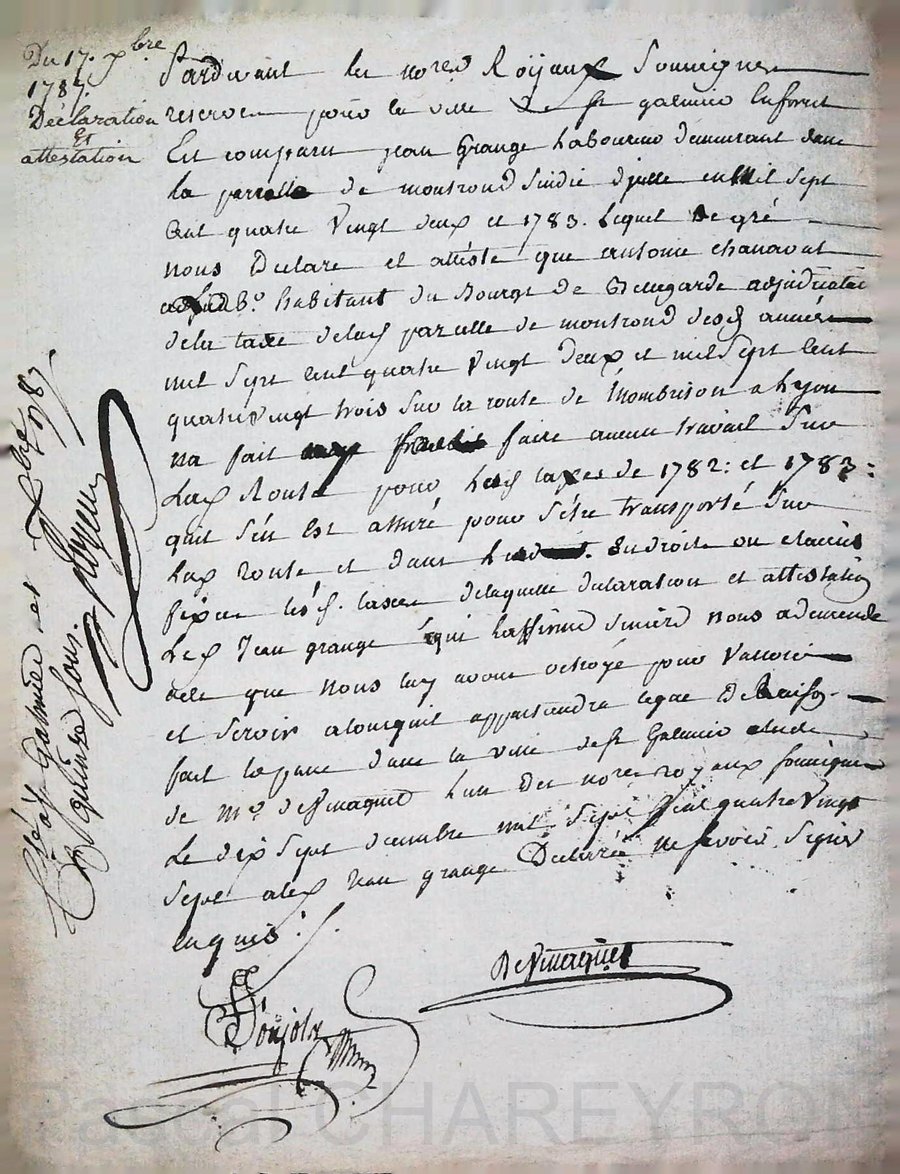 Du 17. xbre
1787.
Déclaration
Et
attestation
Pardevant les nores Royaux Soussignés
reservés pour la ville de St galmier En forest
Est comparu jean Grange Laboureur demeurant dans
la parcelle de montrond Sindic d'jcelle en Mil Sept
Cent quatre Vingt deux et 1783. Lequel De gré
nous Declare et attéste que antoine chanavat
habitant du Bourgt de Bellegarde adjudicataire
dela taxe delad parcelle de montrond desd années
mil Sept cent quatre Vingt deux et mil Sept Cent
quatrevingt trois Sur la route de Monbrison a Lyon
na fait faire aucun travail Sur
Lad Route pour Lesd taxes de 1782: et 1783:
quil S'en Est assuré pour S'étre transporté Sur
Lad route et dans Les Endroits ou etaient
fixées lesd. taxes delaquelle declaration et attestation
Led Jean grange qui Laffirme Sincere nous a demandé
acte que nous luy avons octroyé pour Valloir
et Servir a Cequil appartiendra ce que De Raison
fait et passé dans la ville de St Galmier etude
de Me deVinaquet Lun des nores royaux soussignés
Le dix Sept decembre mil Sept Cent quatre Vingt
Sept aled Jean grange Declaré ne Scavoir Signer
enquis.
DeVinaquet
Pascal CHAREYRON
St Galmier
1787
quinze Sous.